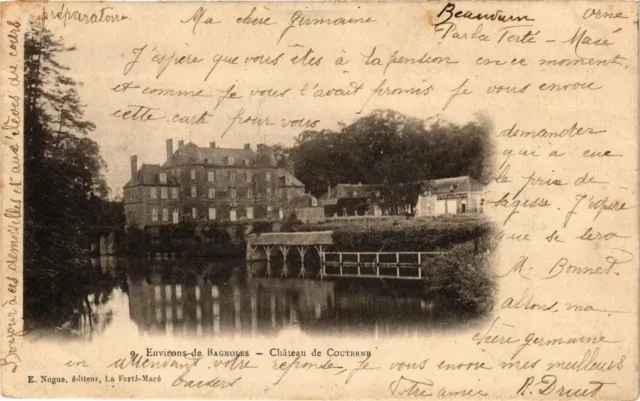 Beaudum Orne
Par la Ferté-Macé
Ma chère Germaine
J'espère que vous êtes à la pension en ce moment
et comme je vous l'avait promis, je vous envoie
cette carte pour vous
demander
qui a eue
le prix de
sagesse. J'espère
que se sera
M. Bonnet.
allons, ma
chère germaine
en attendant votre réponse, je vous envoie mes meilleurs
baisers Votre amie R. Druet
Bonjour à ces demoiselles et aux élèves du cours
préparatoire
9. Environs de BAGNOLES — Château de COUTERNE
E. Nugue, éditeur, La Ferté-Macé